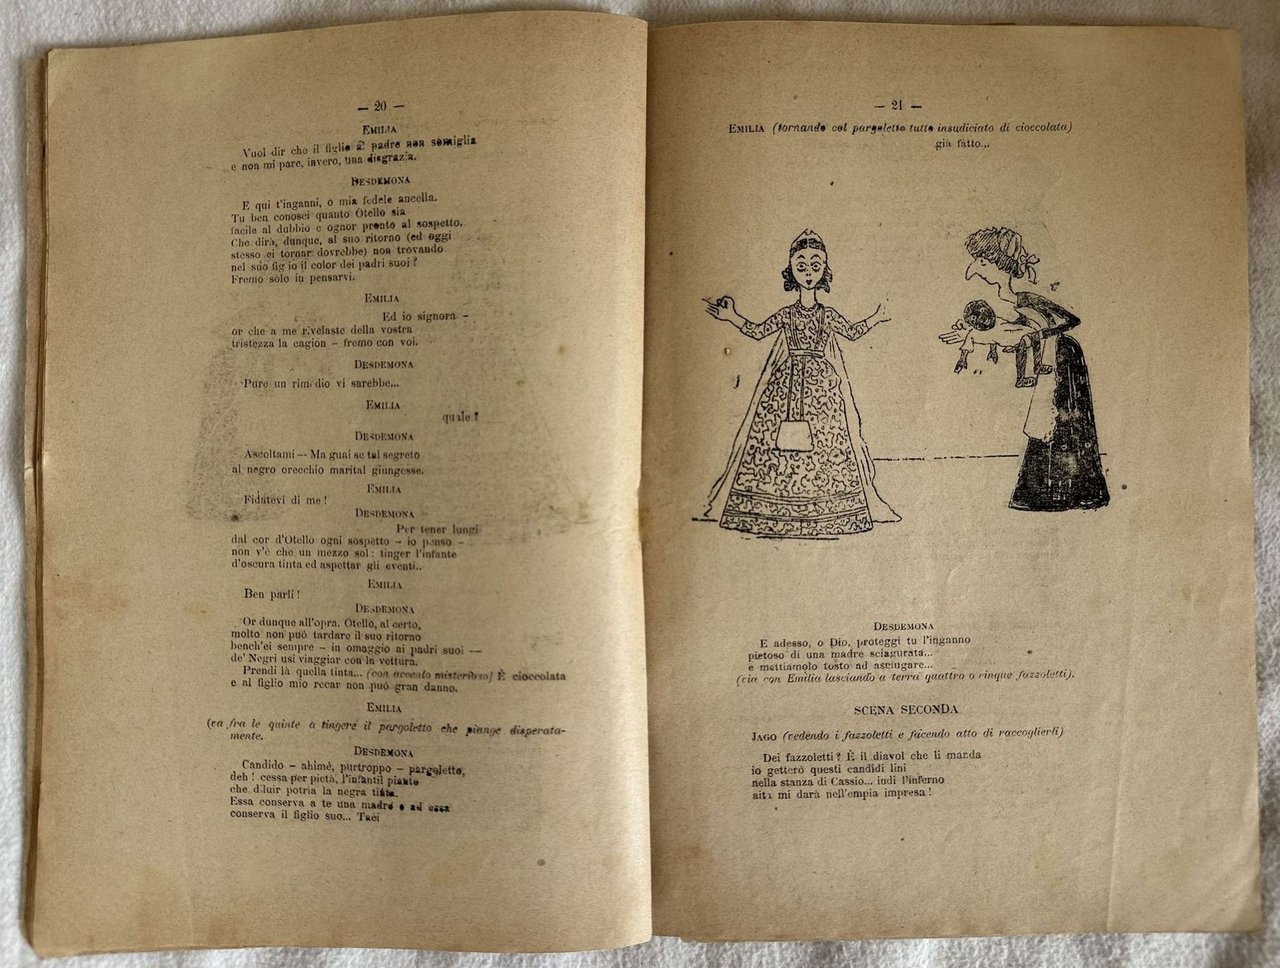 — 20 —
EMILIA
Vuol dir che il figlio al padre non somiglia
e non mi pare, invero, una disgrazia.
DESDEMONA
E qui t'inganni, o mia fedele ancella.
Tu ben conosci quanto Otello sia
facile al dubbio e ognor pronto al sospetto.
Che dirà, dunque, al suo ritorno (ed oggi
stesso ei tornar dovrebbe) non trovando
nel suo figlio il color dei padri suoi?
Fremo solo in pensarvi.
EMILIA
Ed io signora –
or che a me rivelaste della vostra
tristezza la cagion – fremo con voi.
DESDEMONA
Pure un rimedio vi sarebbe...
EMILIA
quale?
DESDEMONA
Ascoltami — Ma guai se tal segreto
al negro orecchio marital giungesse.
EMILIA
Fidatevi di me!
DESDEMONA
Per tener lungi
dal cor d'Otello ogni sospetto – io penso –
non v'è che un mezzo sol: tinger l'infante
d'oscura tinta ed aspettar gli eventi..
EMILIA
Ben parli!
DESDEMONA
Or dunque all'opra. Otello, al certo,
molto non può tardare il suo ritorno
bench'ei sempre – in omaggio ai padri suoi —
de' Negri usi viaggiar con la vettura.
Prendi là quella tinta... (con accento misterioso) È cioccolata
e al figlio mio recar non può gran danno.
EMILIA
(va fra le quinte a tingere il pargoletto che piange disperata-
mente.
DESDEMONA
Candido – ahimè, purtroppo – pargoletto,
deh! cessa per pietà, l'infantil pianto
che diluir potria la negra tinta.
Essa conserva a te una madre e ad essa
conserva il figlio suo... Taci
— 21 —
EMILIA (tornando col pargoletto tutto insudiciato di cioccolata)
già fatto...
DESDEMONA
E adesso, o Dio, proteggi tu l'inganno
pietoso di una madre sciagurata...
e mettiamolo tosto ad asciugare...
(via con Emilia lasciando a terra quattro o cinque fazzoletti).
SCENA SECONDA
JAGO (vedendo i fazzoletti e facendo atto di raccoglierli)
Dei fazzoletti? È il diavol che li manda
io getterò questi candidi lini
nella stanza di Cassio... indi l'inferno
aita mi darà nell'empia impresa!